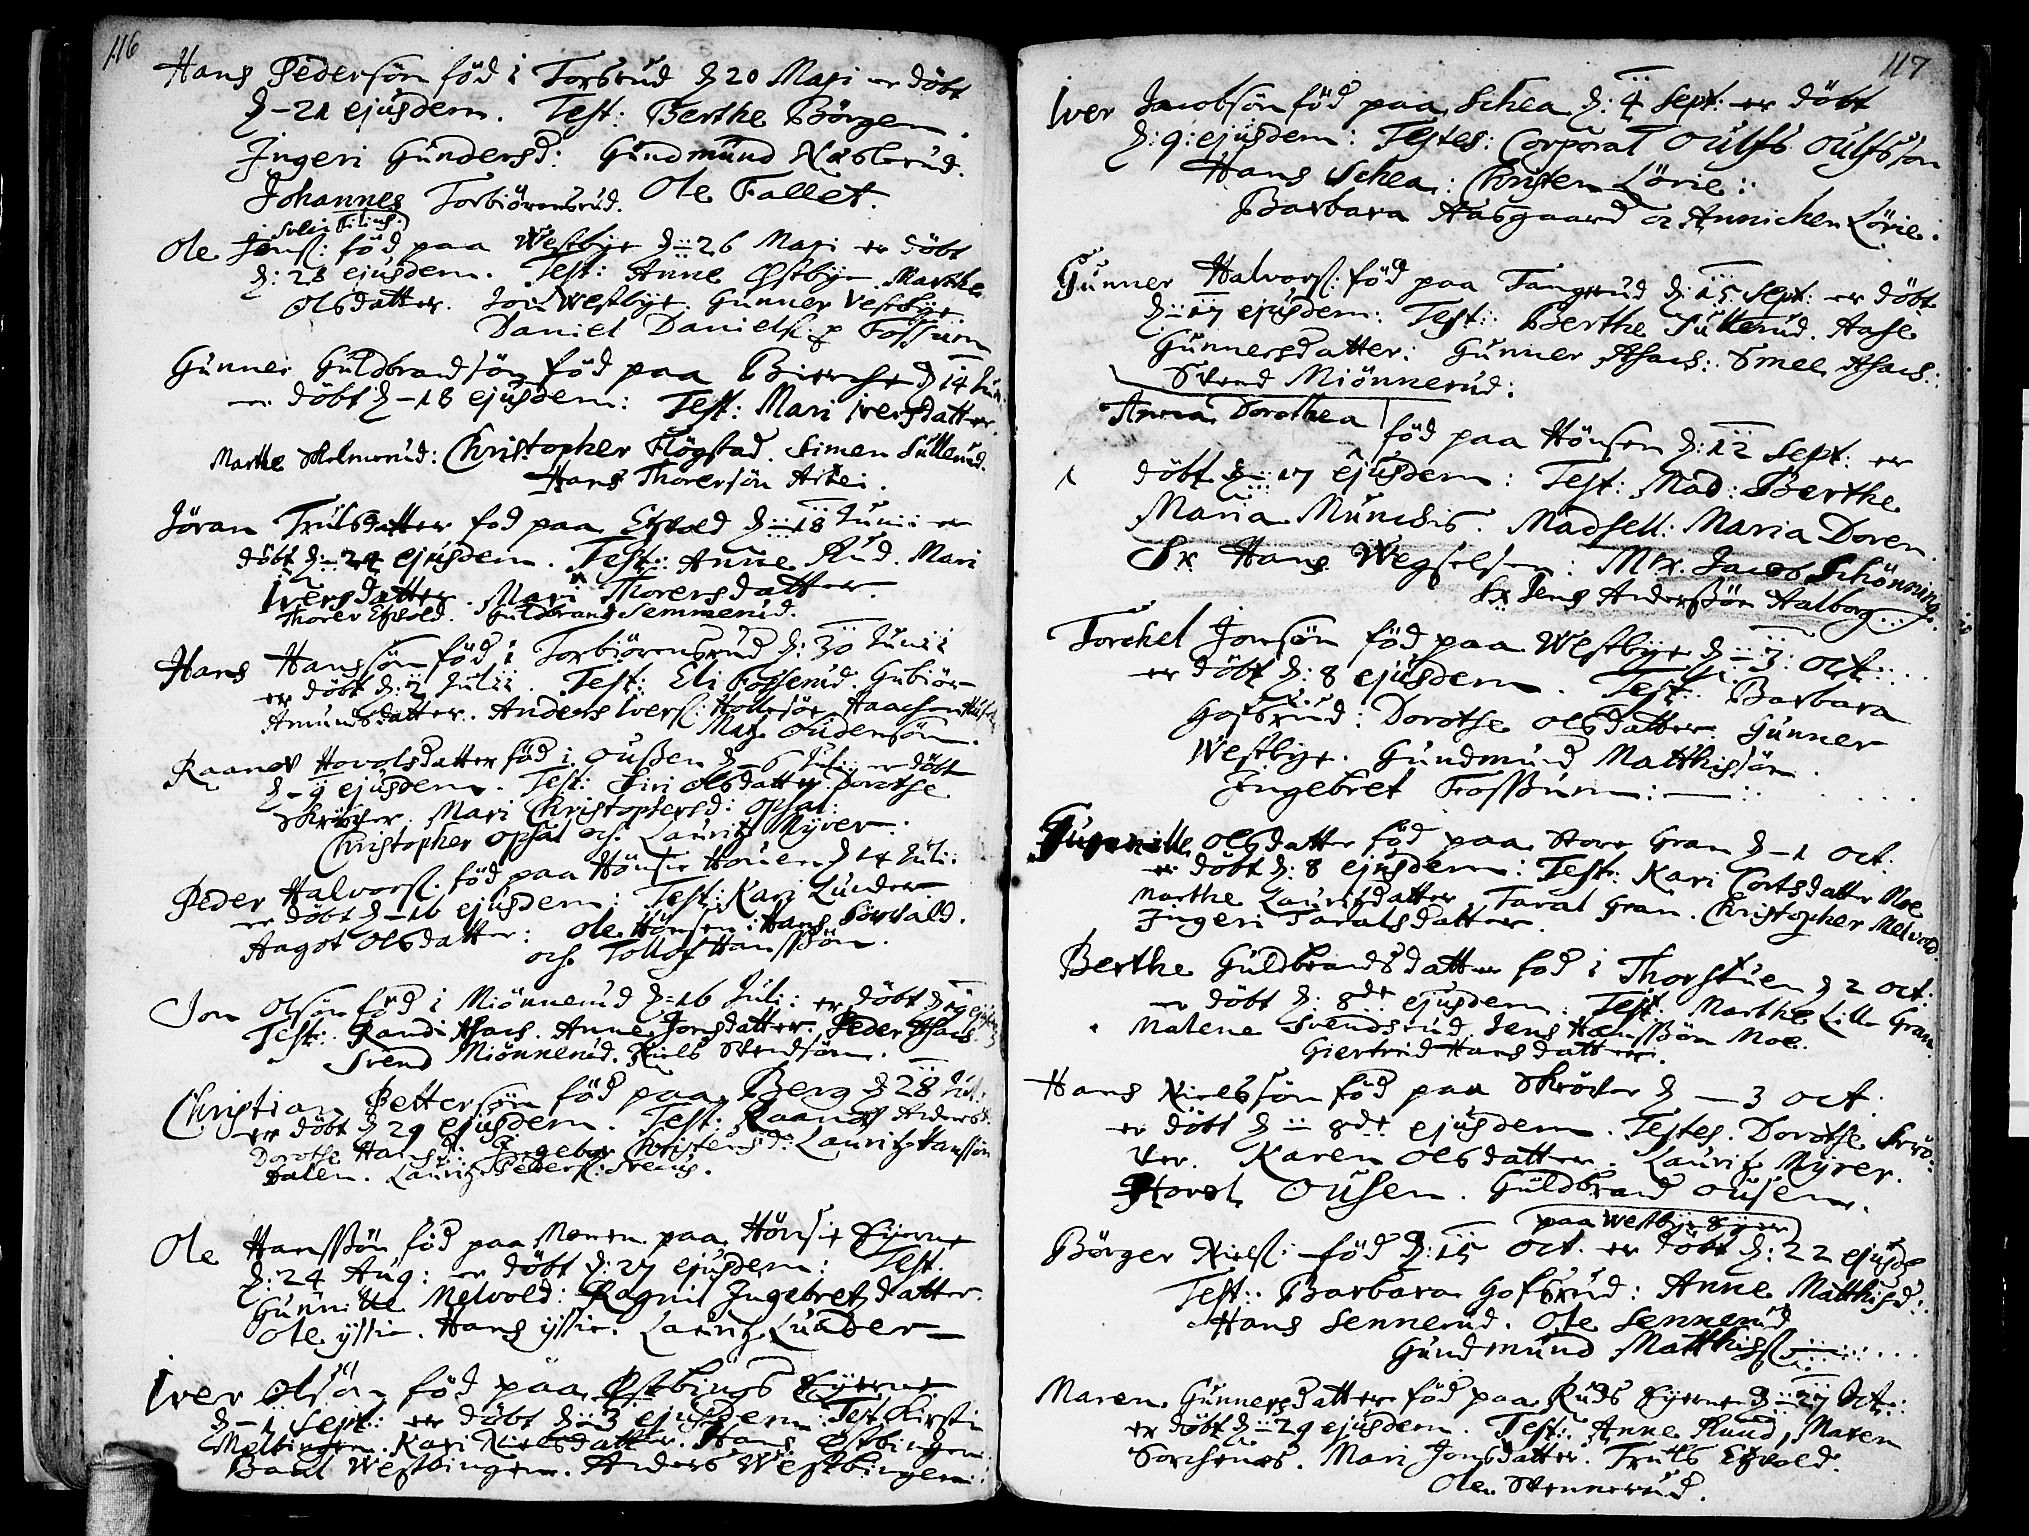 116
Hans Pedersön föd i Torsrud d 20 Maji er döbt
d - 21 ejusdem. Test: Berthe Börgen.
Ingeri Gundersd: Gudmund Næsbrud.
Johannes Torbiörensrud. Ole Fallet.
Ole Jens: föd paa Westbye d: 26 Maji er döbt
d: 28 ejusdem. Test: Anne Østbye. Marthe
Olsdatter. Jon Westbye. Gunner Vestbye
Daniel Daniels: p Fossum
Gunner Guldbrandsön föd paa Bierche d 14 Jun
er döbt d - 18 ejusdem: Test: Mari Iversdatter.
Marthe Skelmerud: Christopher Flögstad. Simen Sullerud.
Hans Thorersön
Jöran Trulsdatter föd paa Etzvold d: 18 Junii er
döbt d: 24 ejusdem. Test: Anne Rud. Mari
Iversdatter. Mari Thorersdatter.
Thorer Etzvold. Guldbrand Semmerud.
Hans Hanssön föd i Torbiörensrud d: 30 Junii
er döbt d: 2 Julii. Test: Eli Fosserud. Gubiör
Amundsdatter. Anders Ivers: Haachon
Matz Oudensön.
Raanov Hovolsdatter föd i Ousen d - 6 Juli er döbt
d - 9 ejusdem. Test: Siri Olsdatter Dorothe
Skröcher. Mari Christophersd: Opsal:
Christopher Opsal och Lauritz Myrer.
Peder Halvors: föd paa Hönsie Houen d 14 Juli:
er döbt d - 16 ejusdem: Test: Kari Lunder
Aagot Olsdatter: Ole Hönsen: Hans Sörvald.
och Tollof Hanssön.
Jon Olsön föd i Miönnerud d: 16 Juli: er döbt d 19
Test: Randi Aas. Anne Jonsdatter. Peder Aas
Svend Miönnerud. Niels Svendsön.
Christian Pettersön föd paa Berg d 28 Jul:
er döbt d 29 ejusdem. Test: Raanov Andersd:
Dorothe Hansd: Ingebor Christensd: Lauritz Hanssön
Dalen. Lauritz Peders:
Ole Hanssön föd paa Moeren paa Hönsie Eyerne
d: 24 Aug: er döbt d: 27 ejusdem: Test.
Gunnille Melvold: Ragnil Ingebretzdatter.
Ole yssie. Hans yssie. Lauritz Lunder
Iver Olsön föd paa Østbings Eyerne
d - 1 Sept: er döbt d: 3 ejusdem: Test. Kirsti
Melbingen. Kari Nielsdatter. Hans Østbingen
Baul Westbingen. Anders Westbingen:
117
Iver Jacobsön föd paa Schea d: 4 Sept: er döbt
d: 9: ejusdem: Testes: Corporal Oulfs Oulfssön
Hans Schea: Christen Lörie:
Barbara Aasgaard oc Annichen Lörie.
Gunner Halvors: föd paa Tangerud d: 15 Sept: er döbt
d: 17 ejusdem: Test: Berthe Sullerud. Aase
Gunnersdatter: Gunner Asach: Smee Asach:
Svend Miönnerud:
Anna Dorothea föd paa Hönsen d: 12 Sept: er
döbt d: 17 ejusdem: Test: Mad: Berthe
Maria Munchs. Madsell: Maria Doren.
Sr Hans Wegselsen: Mr. Jacob Schönning
Sr Jens Anderssön Aalborg
Torchel Jonsön föd paa Westbye d: 3: Oct:
er döbt d: 8 ejusdem. Test: Barbara
Gofsrud: Dorothe Olsdatter. Gunner
Westbye. Gundmund Matthissön.
Ingebret Fossum:
Gunnille Olsdatter föd paa Store Gran d - 1 Oct:
er döbt d: 8 ejusdem: Test: Kari Cortsdatter Moe
Marthe Lauritzdatter. Taral Gran. Christopher Melvold.
Ingeri Taralsdatter.
Berthe Guldbrandsdatter föd i Thorstuen d 2 Oct:
er döbt d: 8de ejusdem: Test: Marthe Lille Gran
Malene Svendsrud. Jens Hanssön Moe.
Giertrud Hansdatter.
Hans Nielssön föd paa Skröcher d - 3 Oct:
er döbt d: 8de ejusdem. Testes. Dorothe Skrö:
ker. Karen Olsdatter. Lauritz Myrer.
Hovel Ousen. Guldbrand Ousen.
paa Westbye Eyer
Börger Niels: föd d: 15 Oct. er döbt d: 22 ejusde
Test: Barbara Gofsrud: Anne Matthisd:
Hans Sennerud. Ole Sennerud
Gundmund Matthiss:
Maren Gunnersdatter föd paa Ruds Eyerne d: 27 Oct:
er döbt d: 29 ejusdem. Test: Anne Ruud, Maren
Sorchenes. Mari Jonsdatter. Truls Etzvold.
Ole Stennerud.